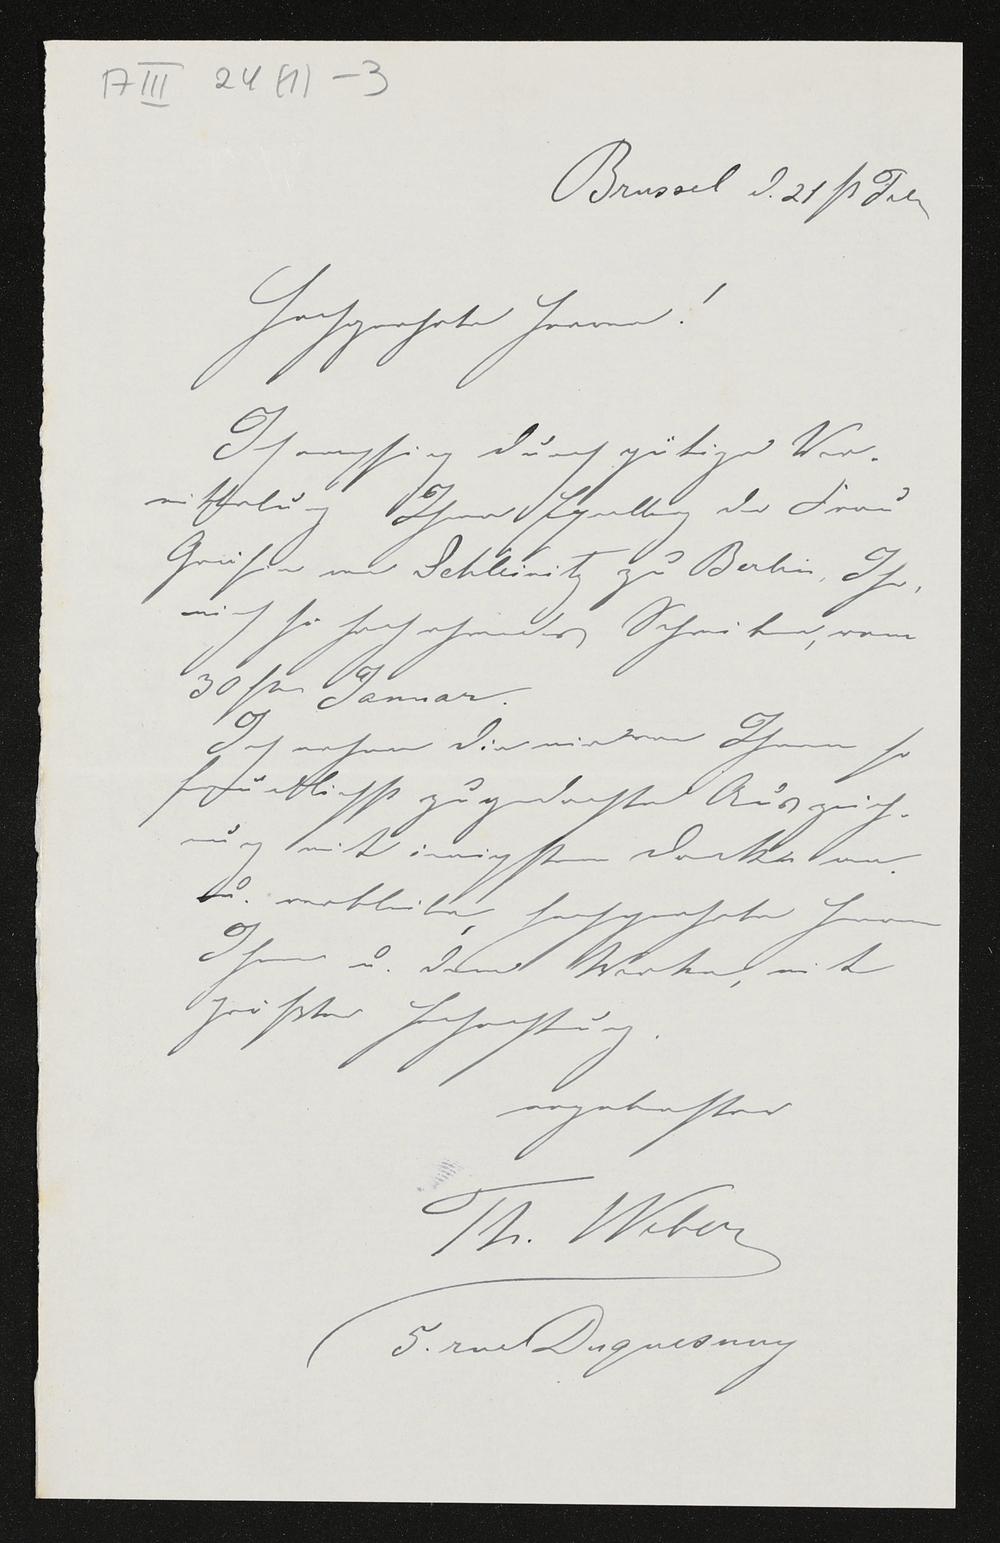 17 III 24 (1) – 3
Brussel d. 21 st Feb
Hochgeehrte Herren!
Ich empfing durch gütige Ver-
mittelung Ihrer Excellenz der Frau
Gräfin von Schleinitz zu Berlin, Ihr,
mich so hoch ehrendes Schreiben, vom
30sten Januar.
Ich nehme die mir von Ihnen so
freundlichst zugedachte Auszeich-
nung mit innigstem Danke an.
u. verbleibe, hochgeehrte Herren
Ihnen u. dem Werke, mit
größter Hochachtung.
ergebenster
Th. Weber
5. rue Duquesnoy